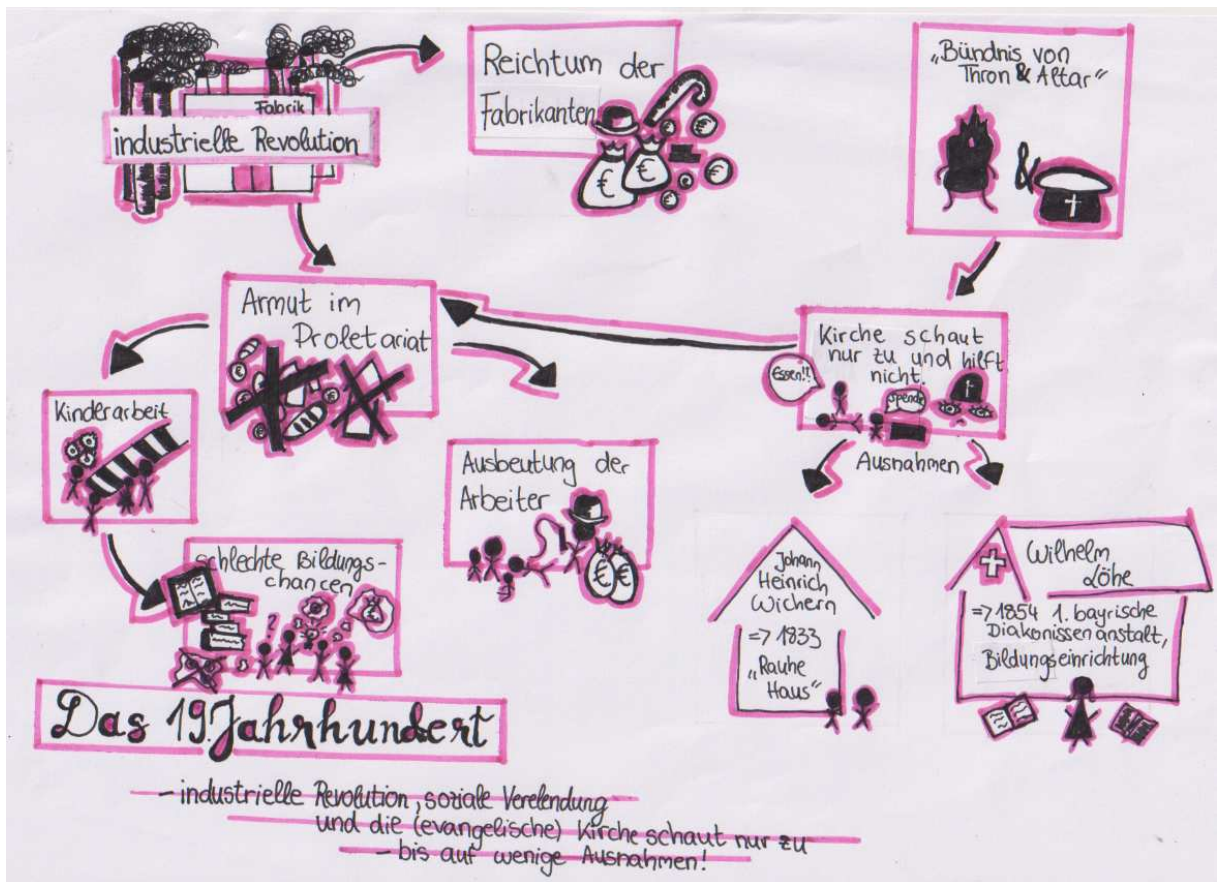 Fabrik
industrielle Revolution
Reichtum der
Fabrikanten
€
€
€
€
€
€
„Bündnis von
Thron & Altar“
&
Armut im
Proletariat
€
€
€
Kirche schaut
nur zu und hilft
nicht.
Essen!!
Spende
Ausnahmen
Kinderarbeit
Ausbeutung der
Arbeiter
€
€
schlechte Bildungs-
chancen
?
Johann
Heinrich
Wichern
=> 1833
„Rauhe
Haus“
Wilhelm
Löhe
=> 1854 1. bayrische
Diakonissenanstalt,
Bildungseinrichtung
Das 19. Jahrhundert
- industrielle Revolution, soziale Verelendung
und die (evangelische) Kirche schaut nur zu
- bis auf wenige Ausnahmen!